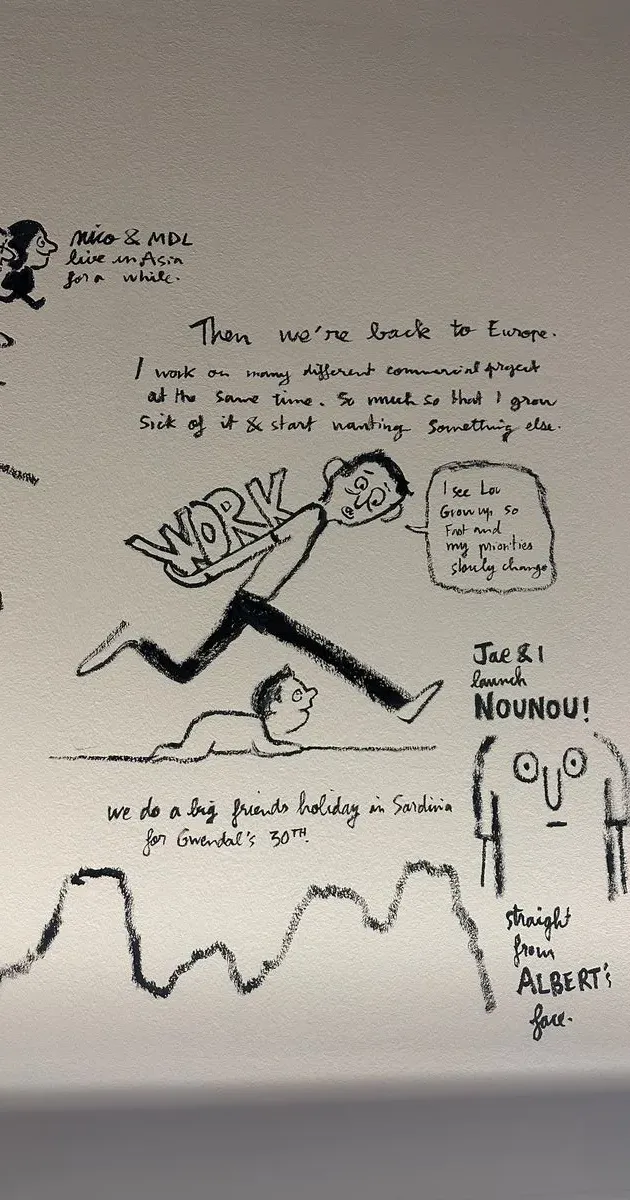 Nico & MDL
live in Asia
for a while.
Then we're back to Europe.
I work on many different commercial project
at the same time. So much so that I grow
Sick of it & start wanting something else.
WORK
I see Lou
Grow up so
Fast and
my priorities
slowly change
Jae & I
launch
NOUNOU!
we do a big friends holiday in Sardinia
for Gwendal's 30TH.
straight
from
ALBERT's
face.